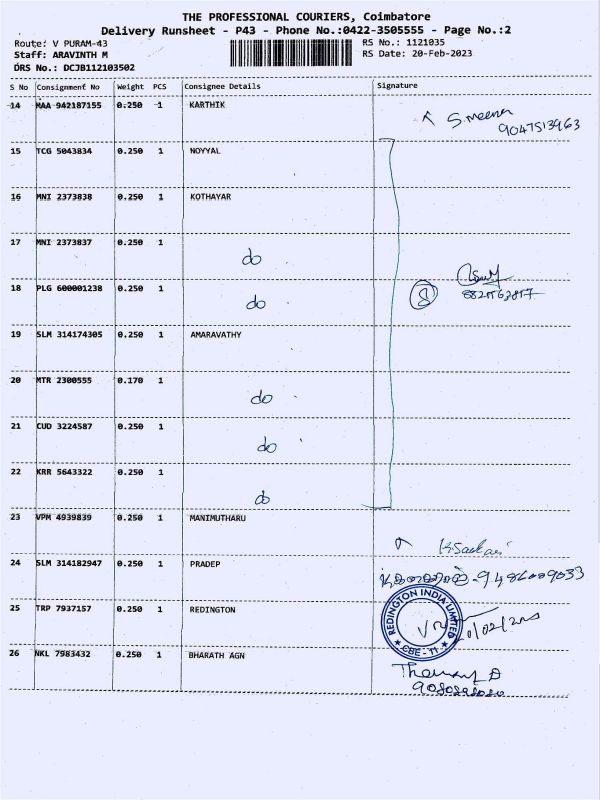 THE PROFESSIONAL COURIERS, Coimbatore
Delivery Runsheet - P43 - Phone No.:0422-3505555 - Page No.:2
Route: V PURAM-43 RS No.: 1121035
Staff: ARAVINTH M RS Date: 20-Feb-2023
DRS No.: DCJB112103502
S No Consignment No Weight PCS Consignee Details Signature
14 MAA 942187155 0.250 1 KARTHIK
S. meena
9047513963
15 TCG 5043834 0.250 1 NOYYAL
16 MNI 2373838 0.250 1 KOTHAYAR
17 MNI 2373837 0.250 1
do
18 PLG 600001238 0.250 1
do 8
19 SLM 314174305 0.250 1 AMARAVATHY
20 MTR 2300555 0.170 1
do
21 CUD 3224587 0.250 1
do
22 KRR 5643322 0.250 1
do
23 VPM 4939839 0.250 1 MANIMUTHARU
24 SLM 314182947 0.250 1 PRADEP
25 TRP 7937157 0.250 1 REDINGTON
REDINGTON INDIA LIMITED
CBE - 11
26 NKL 7983432 0.250 1 BHARATH AGN